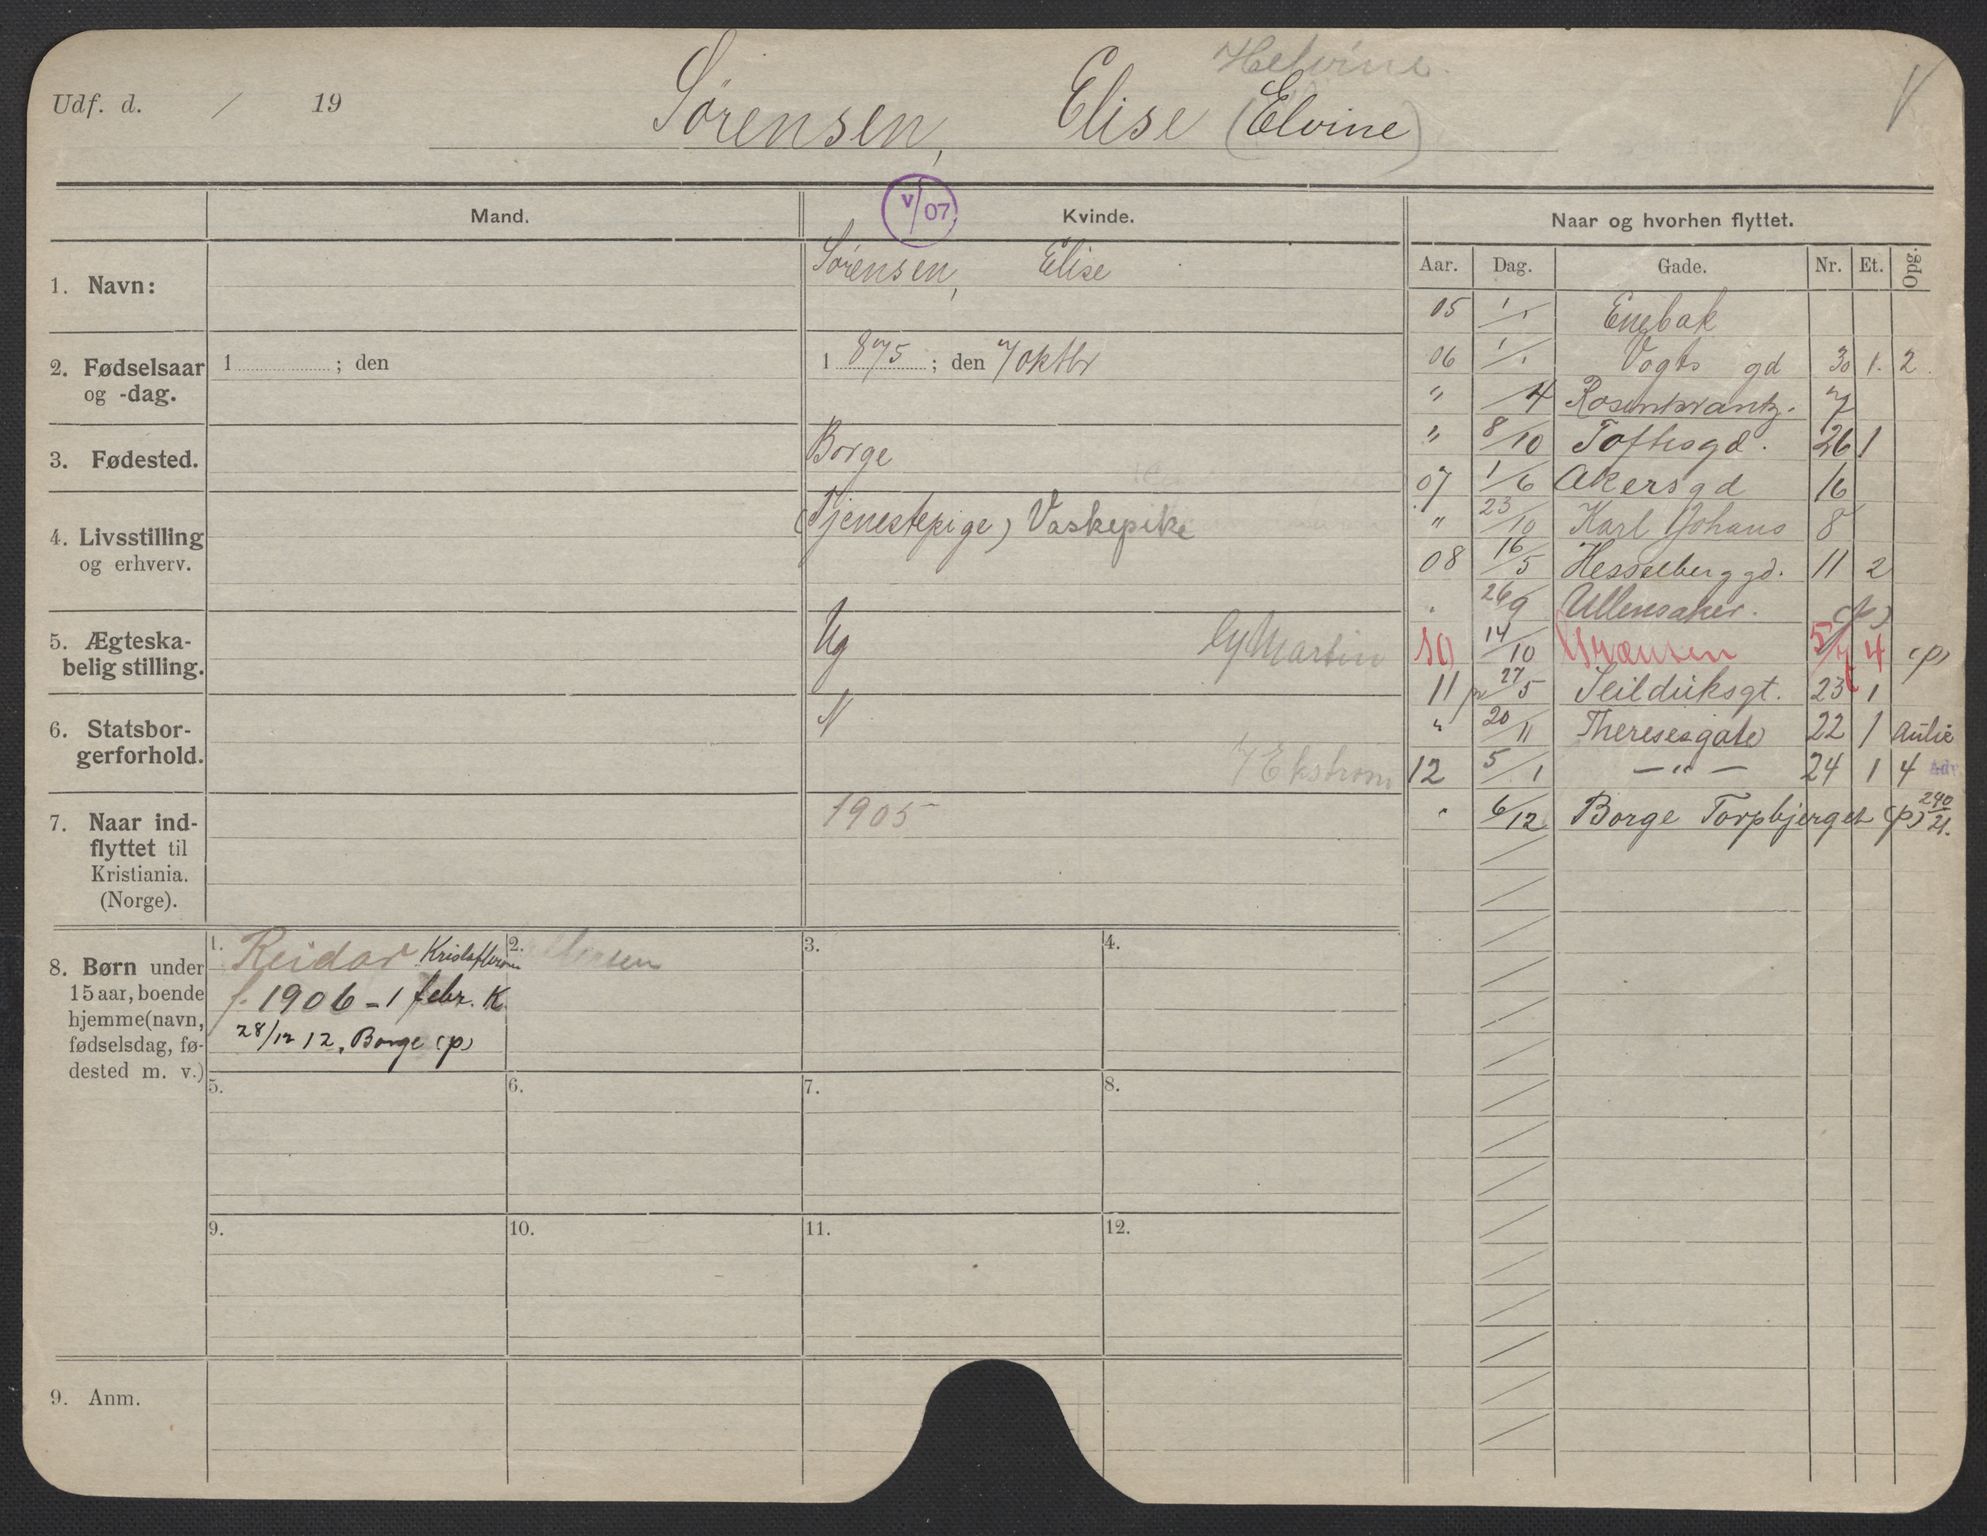 Helvine.
Udf. d. / 19 Sørensen, Elise (Elvine) V
Mand. V/07 Kvinde. Naar og hvorhen flyttet.
Aar. Dag. Gade. Nr. Et. Opg.
1. Navn: Sørensen, Elise
2. Fødselsaar og -dag. 1 ; den 1 875 ; den 7 oktbr
3. Fødested. Borge
4. Livsstilling og erhverv. (Tjenestepige) Vaskepike
5. Ægteska-
belig stilling. Ug Martin
6. Statsbor-
gerforhold. N
Ekstrøm
7. Naar ind-
flyttet til
Kristiania.
(Norge). 1905
05 1/1 Enebak
06 1/1 Vogts gd 30 1. 2.
" /4 Rosenkrantz. 7
" 8/10 Toftesgd. 26 1
07 1/6 Akersgd 16
" 23/10 Karl Johans 8
08 16/5 Hesselberggd. 11 2
" 26/9 Ullensaker. (p)
10 14/10 Grænsen 5/7 4 (p)
11 27/5 Seilduksgt. 23 1
" 20/11 Theresesgate 22 1 Aulie
12 5/1 —"— 24 1 4 Adv
" 6/12 Borge Torpbjerget (p) 240/21.
8. Børn under
15 aar, boende
hjemme (navn,
fødselsdag, fø-
dested m. v.)
1. Reidar
f. 1906 - 1 febr. K.
28/12 12, Borge (p)
2.
3.
4.
5.
6.
7.
8.
9.
10.
11.
12.
9. Anm.